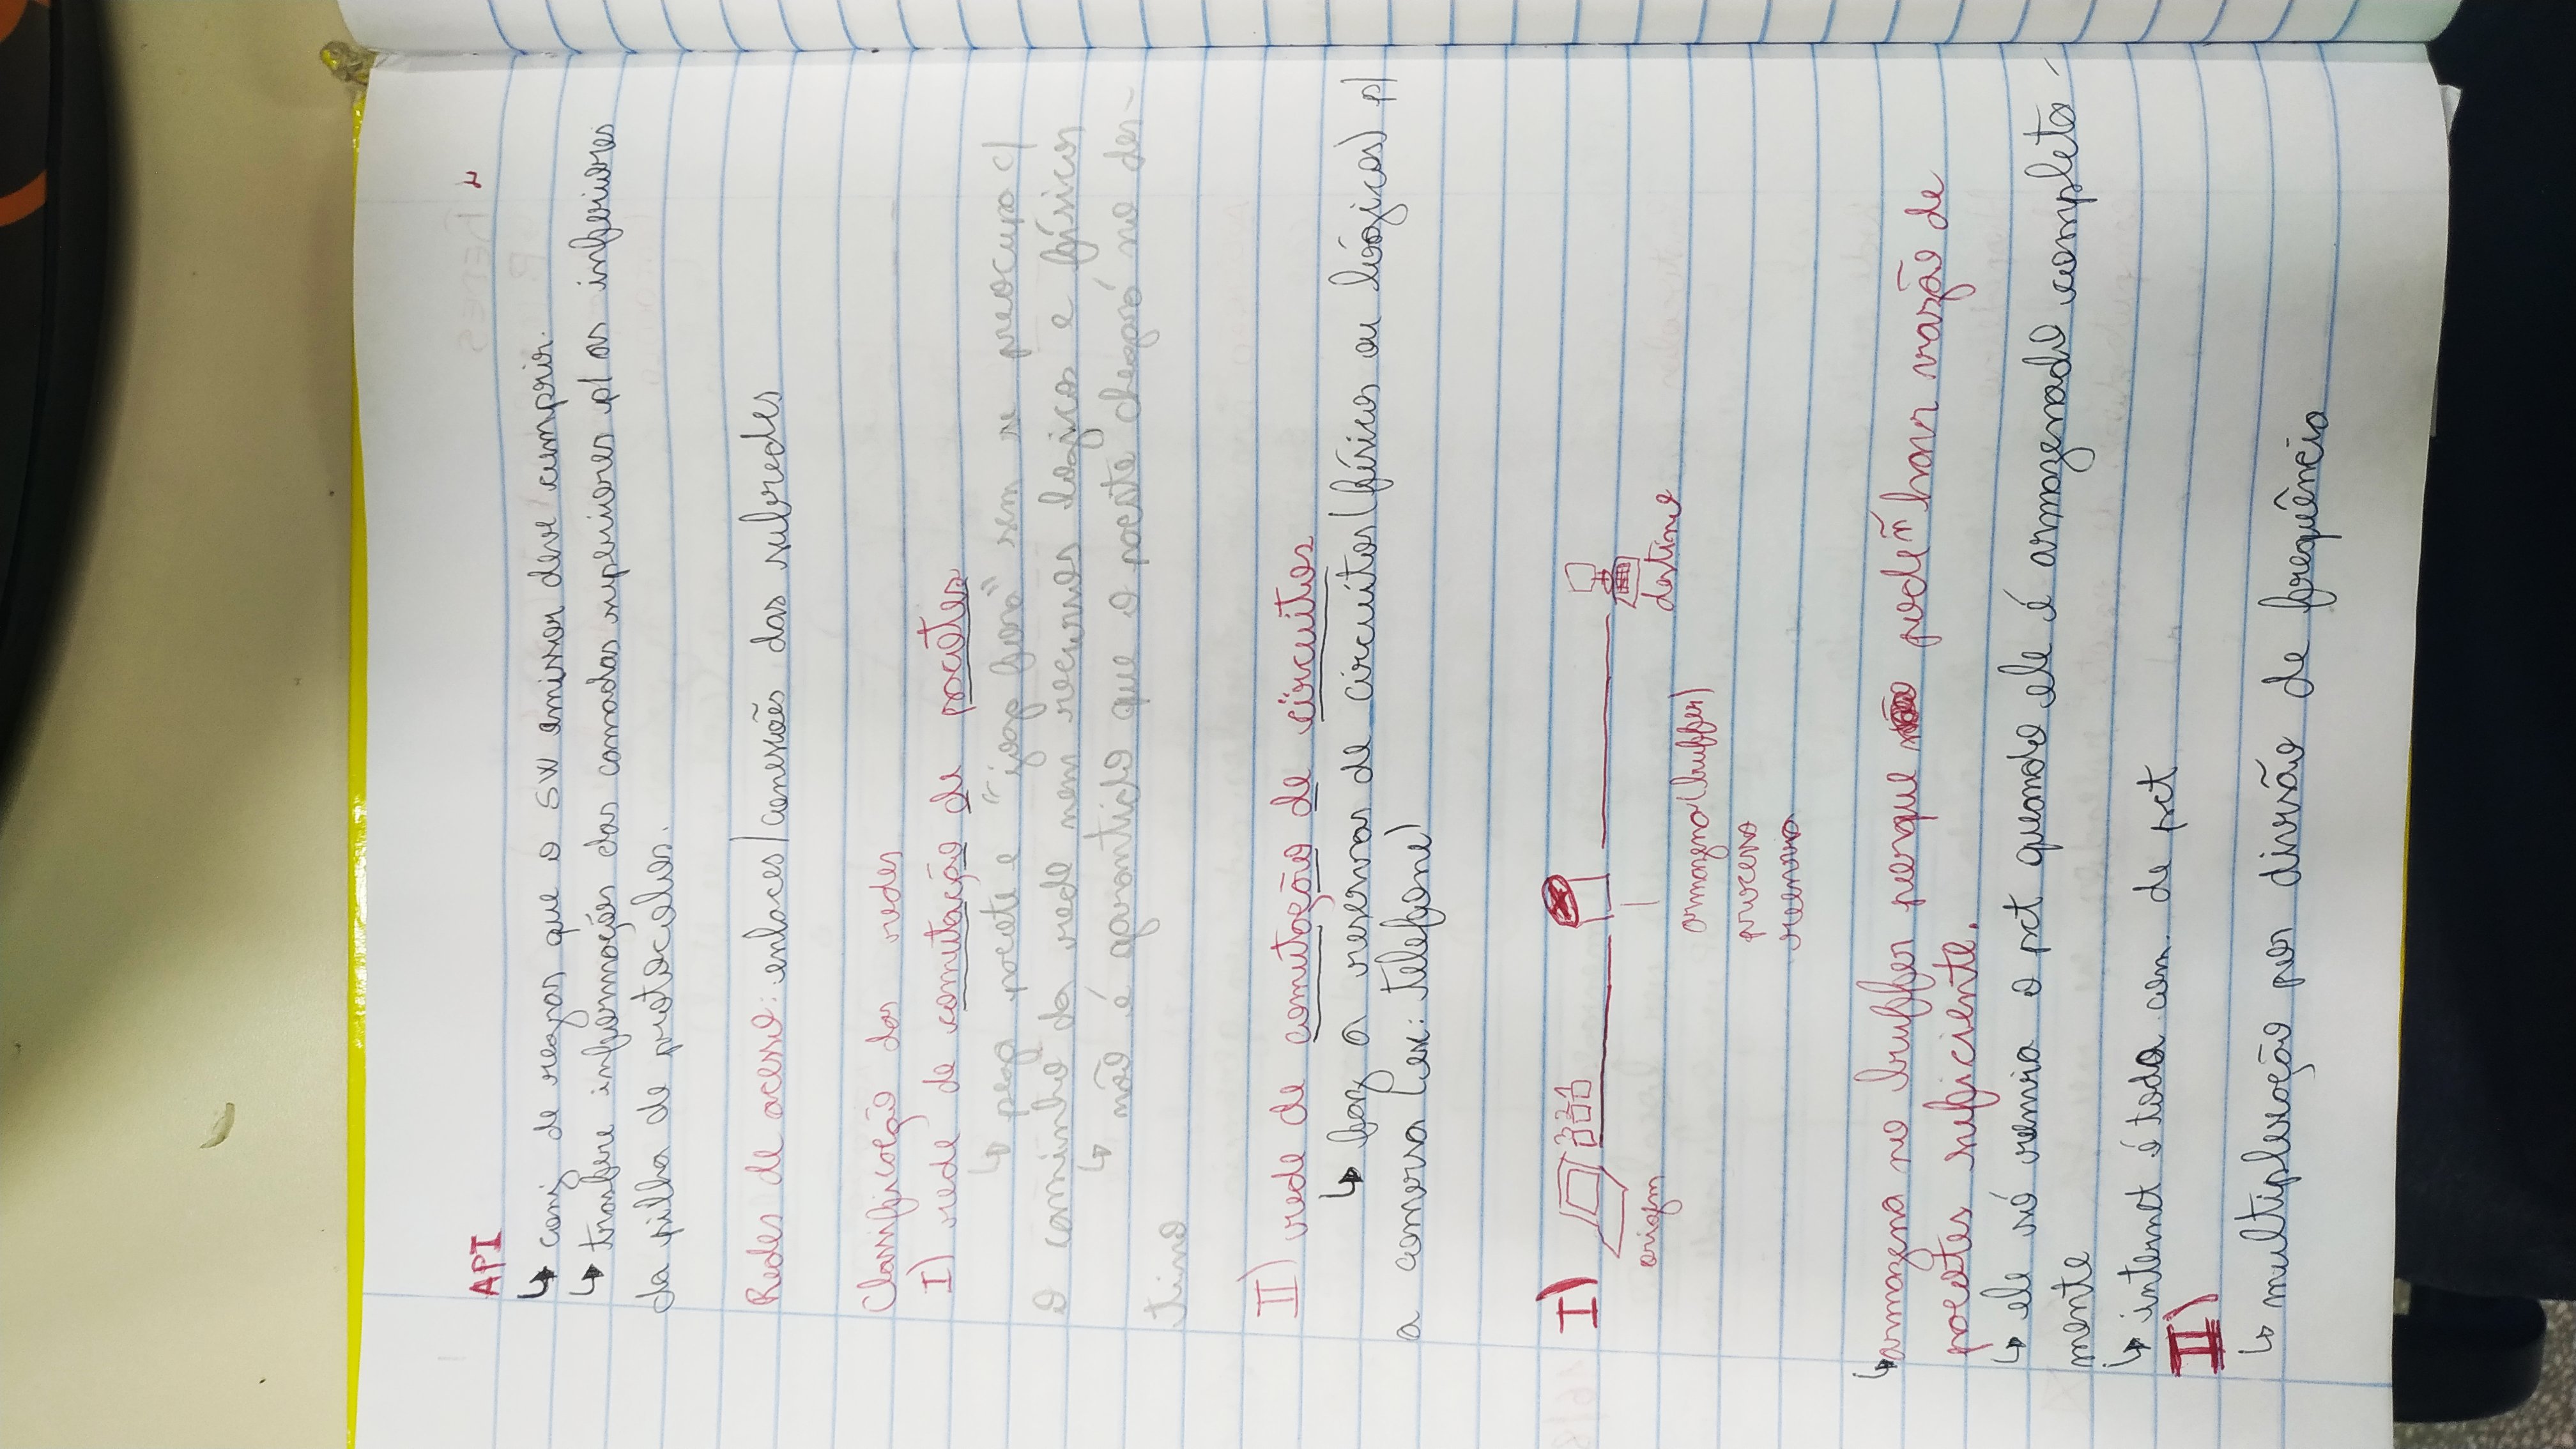 API
↳ conj de regras que o SW emissor deve cumprir.
↳ trasfere informações das camadas superiores p/ as inferiores
da pilha de protocolos.
Redes de acesso: enlaces/conexões das subredes
Classificação das redes
I) rede de comutação de pacotes
↳ pega pacote e "joga fora" sem se preocupa c/
o caminho da rede nem recursos lógicos e físicos
↳ não é garantido que o pacote chegará no des-
tino
II) rede de comutação de circuitos
↳ faz a reservas de circuitos (físicos ou lógicos) p/
a conversa (ex: telefone)
I) 3 2 1
origem
destino
armazena (buffer)
processa
reenvia
↳ armazena no buffer porque pode ñ haver vazão de
pacotes suficiente.
↳ ele só reenvia o pct quando ele é armazenado completa-
mente
↳ internet é toda com. de pct
II)
↳ multiplexação por divisão de frequência